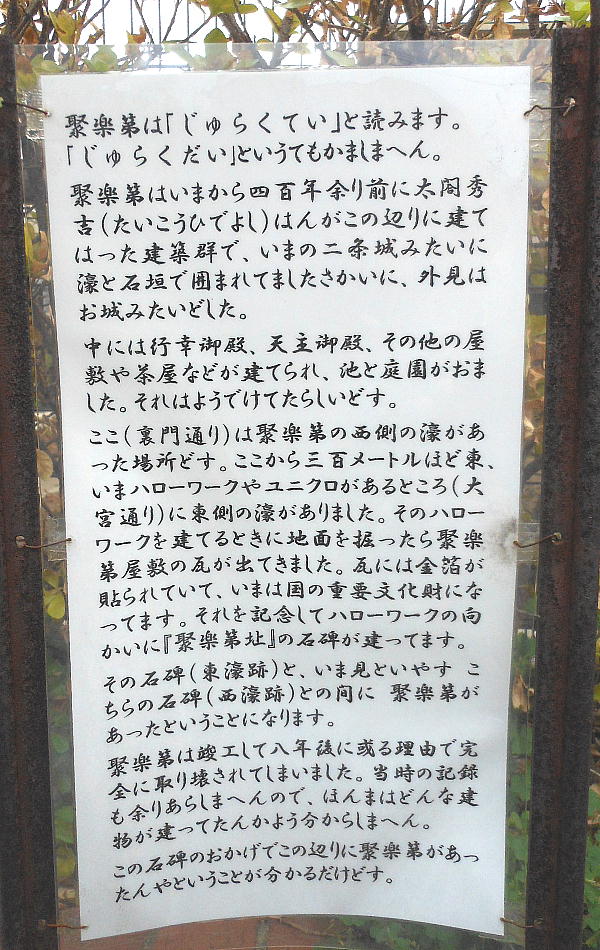 聚楽第は「じゅらくてい」と読みます。
「じゅらくだい」というてもかましまへん。
聚楽第はいまから四百年余り前に太閤秀
吉(たいこうひでよし)はんがこの辺りに建て
はった建築群で、いまの二条城みたいに
濠と石垣で囲まれてましたさかいに、外見は
お城みたいどした。
中には行幸御殿、天主御殿、その他の屋
敷や茶屋などが建てられ、池と庭園がおま
した。それはようでけてたらしいどす。
ここ(裏門通り)は聚楽第の西側の濠があ
った場所どす。ここから三百メートルほど東、
いまハローワークやユニクロがあるところ(大
宮通り)に東側の濠がありました。そのハロー
ワークを建てるときに地面を掘ったら聚楽
第屋敷の瓦が出てきました。瓦には金箔が
貼られていて、いまは国の重要文化財にな
ってます。それを記念してハローワークの向
かいに『聚楽第址』の石碑が建ってます。
その石碑(東濠跡)と、いま見といやす こ
ちらの石碑(西濠跡)との間に 聚楽第が
あったということになります。
聚楽第は竣工して八年後に或る理由で完
全に取り壊されてしまいました。当時の記録
も余りあらしまへんので、ほんまはどんな建
物が建ってたんかよう分からしまへん。
この石碑のおかげでこの辺りに聚楽第があっ
たんやということが分かるだけどす。